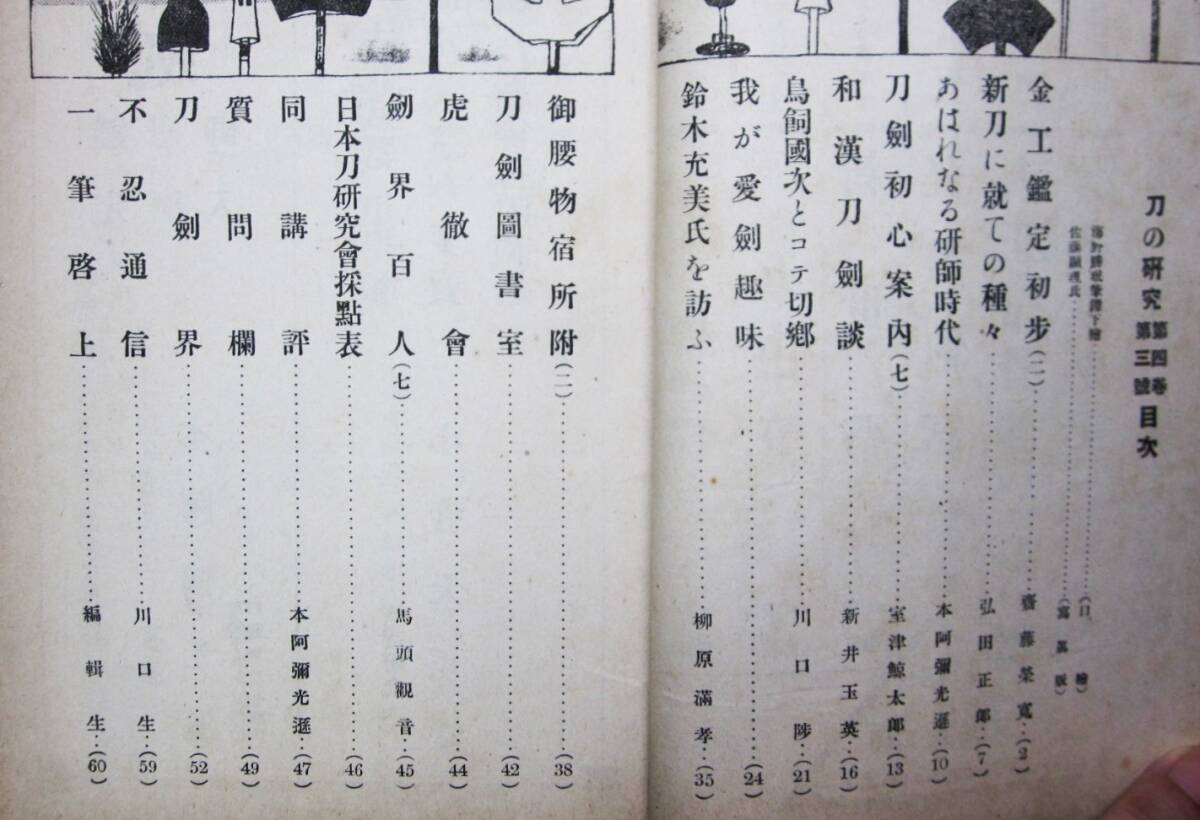 刀の研究 第四卷 第三號 目次
佐藤顯理氏……(寫眞版)
金工鑑定初步(二)……齋藤榮寬…(2)
新刀に就ての種々……弘田正郎…(7)
あはれなる研師時代……本阿彌光遜…(10)
刀劍初心案內(七)……室津鯨太郎…(13)
和漢刀劍談……新井玉英…(16)
鳥飼國次とコテ切鄕……川口陟…(21)
我が愛劍趣味……(24)
鈴木充美氏を訪ふ……柳原滿孝…(35)
御腰物宿所附(二)……(38)
刀劍圖書室……(42)
虎徹會……(44)
劒界百人(七)……馬頭觀音…(45)
日本刀研究會採點表……(46)
同講評……本阿彌光遜…(47)
質問欄……(49)
刀劍界……(52)
不忍通信……川口生…(59)
一筆啓上……編輯生…(60)